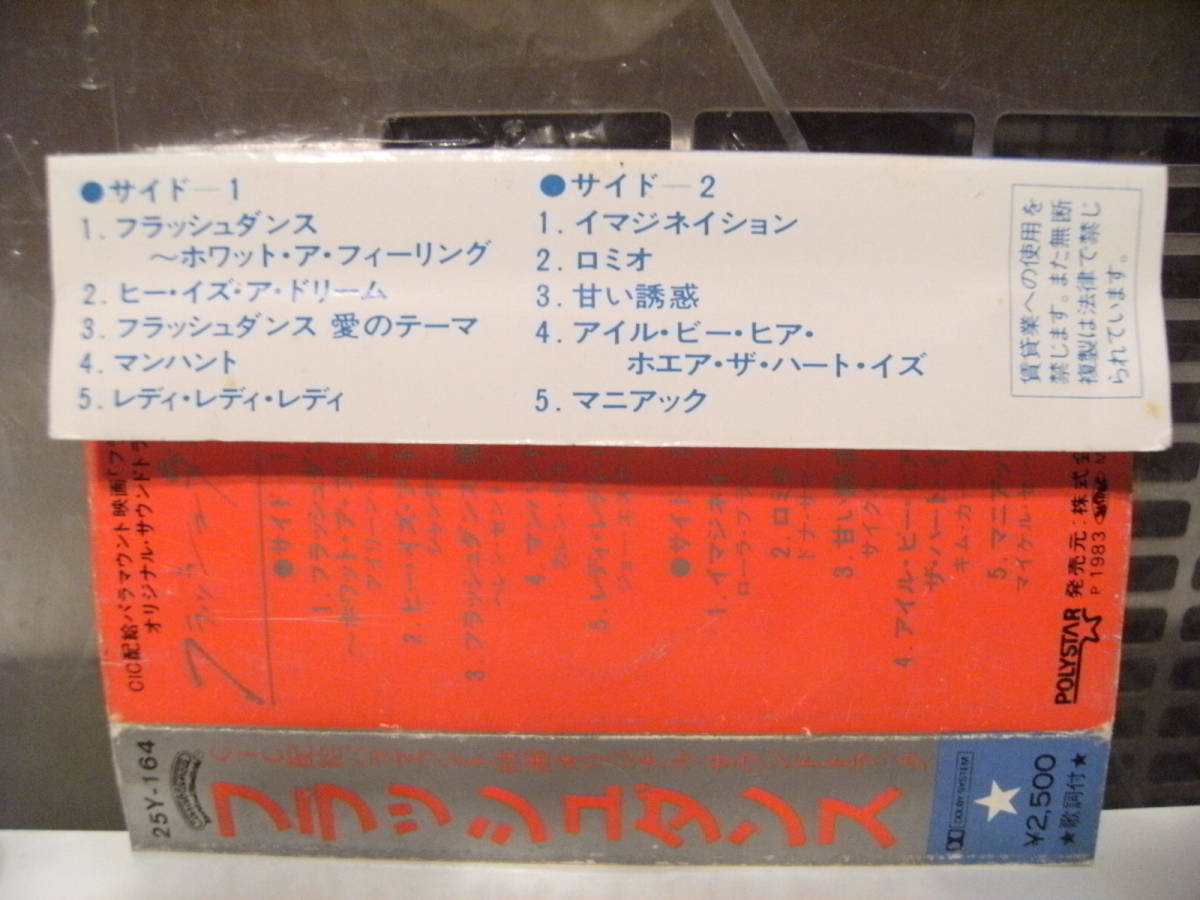 ●サイド―1
1. フラッシュダンス
～ホワット・ア・フィーリング
2. ヒー・イズ・ア・ドリーム
3. フラッシュダンス 愛のテーマ
4. マンハント
5. レディ・レディ・レディ
●サイド―2
1. イマジネイション
2. ロミオ
3. 甘い誘惑
4. アイル・ビー・ヒア・
ホエア・ザ・ハート・イズ
5. マニアック
賃貸業への使用を
禁じます。また無断
複製は法律で禁じ
られています。
CIC配給パラマウント映画「フ
オリジナル・サウンドトラ
フラッシュ
●サイド
1. フラッシュダ
～ホワット・ア・フ
アイリーン
2. ヒー・イズ・ア・ド
シャン
3. フラッシュダンス
ヘレン・セン
4. マンハン
カレン・
5. レディ・レデ
ジョー・エス
●サイド
1. イマジネイ
ローラ・ブ
2. ロミオ
ドナ・サマ
3. 甘い
サイク
4. アイル・ビー・ヒア
ザ・ハート・イ
キム・カー
5. マニアッ
マイケル・セン
POLYSTAR 発売元：株式会
P 1983
25Y-164
CIC配給パラマウント映画オリジナル・サウンドトラック
フラッシュダンス
DOLBY SYSTEM
¥2,500
★歌詞付★